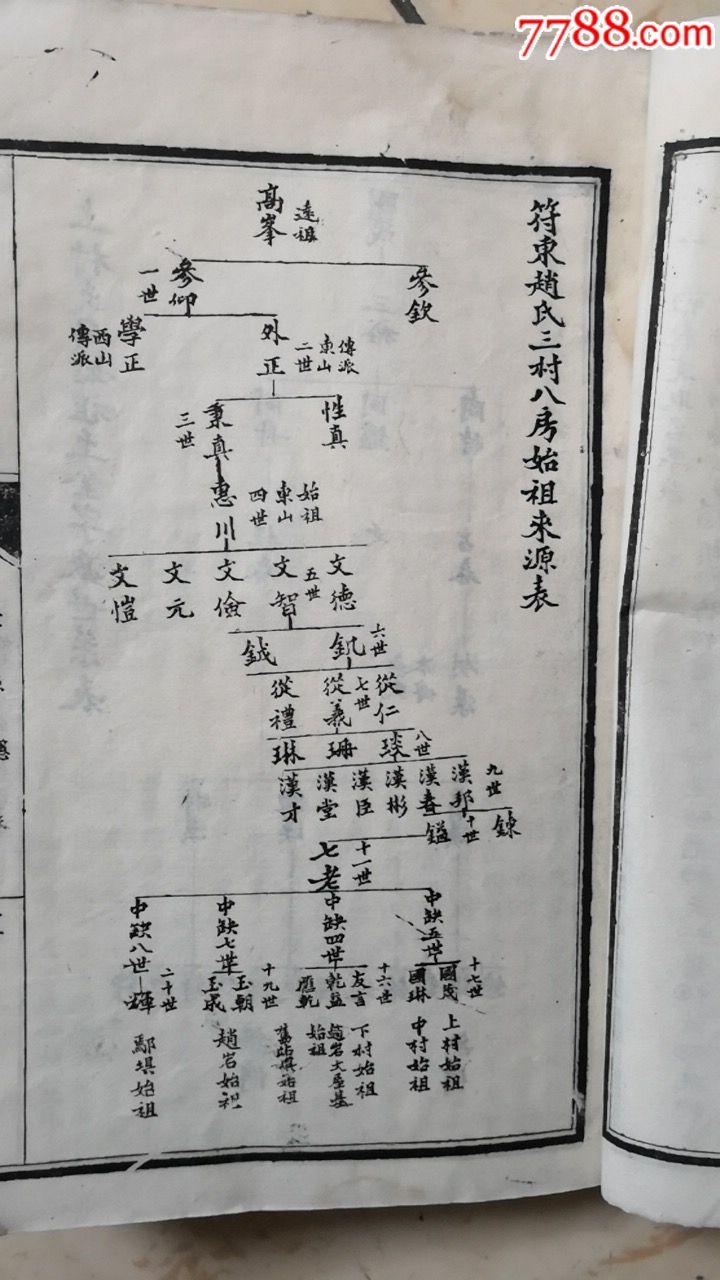 7788.com
符東趙氏三村八房始祖來源表
遠祖
高峯
參欽
參仰
一世
傳派
東山
二世
外正
學正
西山
傳派
性真
秉真
三世
始祖
東山
四世
惠川
文德
五世
文智
文儉
文元
文愷
六世
釩
鉞
從仁
七世
從義
從禮
八世
琰
珊
琳
九世
漢邦
漢春
漢彬
漢臣
漢堂
漢才
鍊
十世
鎰
十一世
七老
中缺五世
中缺四世
中缺七世
中缺八世
輝
十七世
國茂
國琳
十六世
友言
乾益
應乾
十九世
玉朝
玉成
二十世
上村始祖
中村始祖
下村始祖
趙宕大屋基
始祖
始祖
趙宕始祖
鄢垻始祖